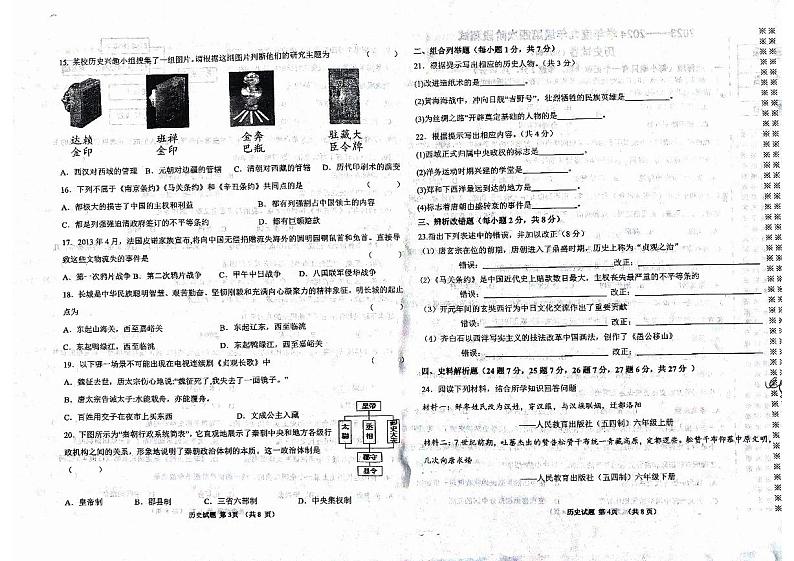 15. 某校历史兴趣小组搜集了一组图片,请根据这组图片判断他们的研究主题为 （ ）
达赖金印
班禅金印
金奔巴瓶
驻藏大臣令牌
A. 西汉对西域的管理 B. 元朝对边疆的管辖 C. 清朝对西藏的管辖 D. 历代印刷术的演变
16. 下列不属于《南京条约》《马关条约》和《辛丑条约》共同点的是 （ ）
A. 都极大的损害了中国的主权和利益 B. 都有列强割占中国领土的内容
C. 都是列强强迫清政府签订的不平等条约 D. 都有巨额赔款
17. 2013年4月，法国皮诺家族宣布,将向中国无偿捐赠流失海外的圆明园铜鼠首和兔首。直接导
致这些文物流失的事件是 （ ）
A. 第一次鸦片战争 B. 第二次鸦片战争 C. 甲午中日战争 D. 八国联军侵华战争
18. 长城是中华民族聪明智慧、艰苦勤奋、坚韧刚毅和充满向心凝聚力的精神象征。明长城的起止
点为 （ ）
A. 东起山海关，西至嘉峪关 B. 东起辽东，西至临洮
C. 东起鸭绿江，西至临洮 D. 东起鸭绿江，西至嘉峪关
19. 以下哪一场景不可能出现在电视连续剧《贞观长歌》中 （ ）
A. 魏征去世，唐太宗伤心地说“魏征死了,我失去了一面镜子。”
B. 唐太宗告诫太子:水能载舟，亦能覆舟。
C. 百姓用交子在夜市上买东西 D. 文成公主入藏
20. 下图所示为“秦朝行政系统简表”。它直观地展示了秦朝中央和地方各级行
政机构之间的关系，形象地说明了秦朝政治体制的本质。这一政治体制是
（ ）
皇帝
太尉
丞相
御史大夫
郡守
县令
A. 皇帝制 B. 郡县制 C. 三省六部制 D. 中央集权制
历史试题 第3页 （共8页）
二、组合列举题（每小题1分，共7分）
21. 根据提示写出相应的历史人物。（共3分）
(1)改进造纸术的是____________。
(2)黄海海战中，冲向日舰“吉野号”，壮烈牺牲的民族英雄是____________。
(3)为丝绸之路”开辟奠定基础的人物的是____________。
22. 根据提示写出相应内容。（共4分）
(1)西域正式归属中央政权的标志是____________。
(2)洋务运动时期兴建的学堂是____________。
(3)郑和下西洋最远到达的地方是____________。
(4)标志着唐朝由盛转衰的事件是____________。
三、辨析改错题（每小题2分，共8分）
23.指出下列表述中的错误，并加以改正（8分）
（1）唐玄宗在位的前期，唐朝进入了鼎盛时期，历史上称为“贞观之治”
错误：____________ 改正：____________
（2）《马关条约》是中国近代史上赔款数目最大、主权丧失最严重的不平等条约
错误：____________ 改正：____________
（3）开元年间的玄奘西行为中日文化交流作出了重要贡献
错误：____________ 改正：____________
（4）齐白石以西洋写实主义的技法改革中国画法，创作了《愚公移山》
错误：____________ 改正：____________
四、史料解析题（24题7分，25题7分，26题7分，27题6分，共27分）
24. 阅读下列材料，结合所学知识回答问题
材料一：鲜卑姓氏改为汉姓，穿汉服，与汉族联姻，迁都洛阳
——人民教育出版社（五四制）六年级上册
材料二：7世纪前期，吐蕃杰出的赞普松赞干布统一青藏高原，定都逻些。松赞干布仰慕中原文明，
几次向唐求婚
——人民教育出版社（五四制）六年级下册
历史试题 第4页 （共8页）